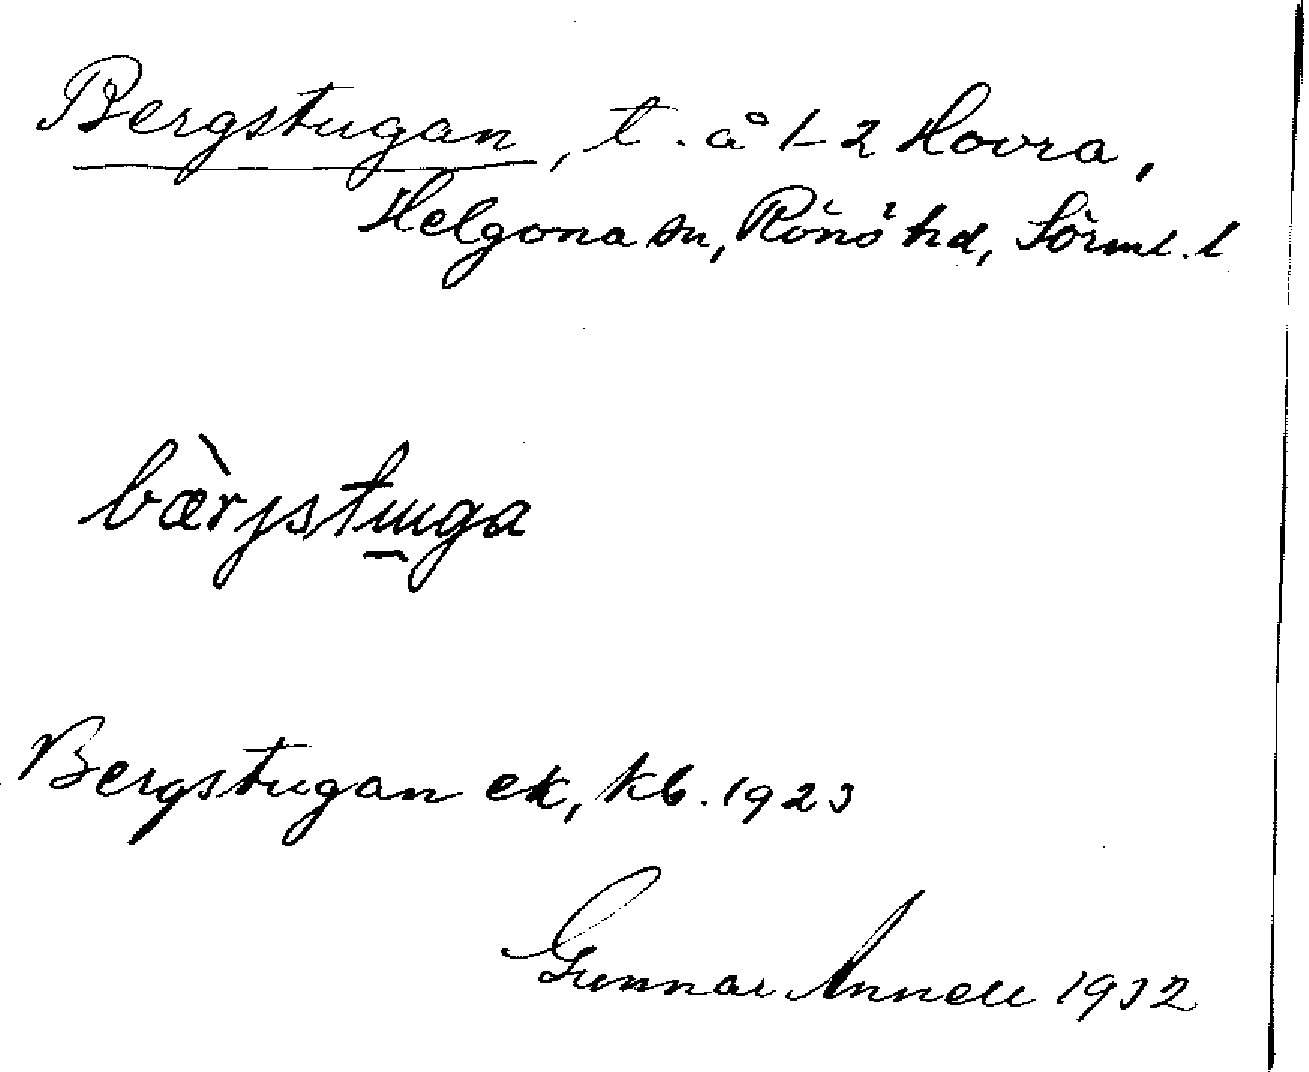 Bergstugan, t. å 1-2 Hovra,
Helgona sn, Rönö hd, Sörml. l
bæ̀rjstuga
Bergstugan ek, kb. 1923
Gunnar Annell 1932